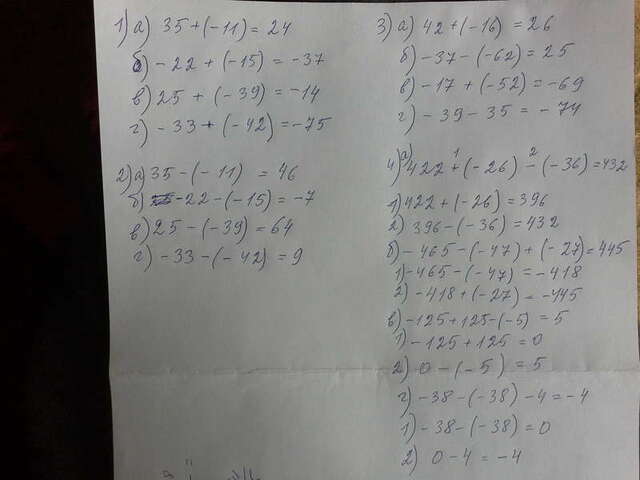 1) а) 35 + (-11) = 24
б) - 22 + (-15) = -37
в) 25 + (-39) = -14
г) - 33 + (-42) = -75
2) а) 35 - (-11) = 46
б) -22 - (-15) = -7
в) 25 - (-39) = 64
г) - 33 - (- 42) = 9
3) а) 42 + (-16) = 26
б) -37 - (-62) = 25
в) -17 + (-52) = -69
г) - 39 - 35 = - 74
4) а) 422 + (-26) - (-36) = 432
1) 422 + (-26) = 396
2) 396 - (-36) = 432
б) - 465 - (-47) + (-27) = 445
1) -465 - (-47) = -418
2) -418 + (-27) = -445
в) -125 + 125 - (-5) = 5
1) -125 + 125 = 0
2) 0 - (-5) = 5
г) -38 - (-38) - 4 = -4
1) -38 - (-38) = 0
2) 0 - 4 = -4